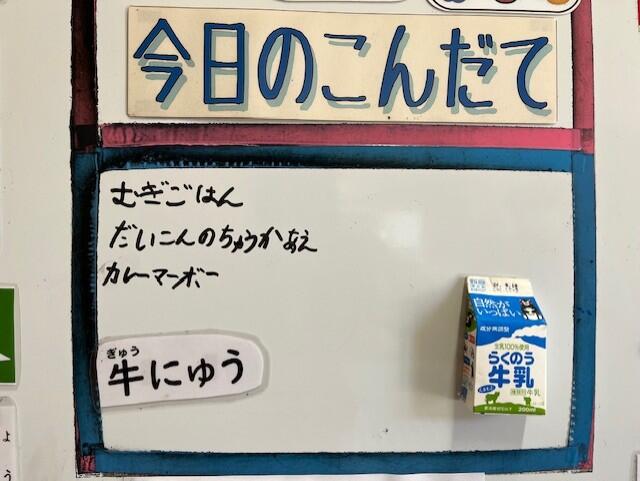 今日のこんだて
むぎごはん
だいこんのちゅうかあえ
カレーマーボー
ぎゅう
牛にゅう
自然が
いっぱい
成分無調整
生乳100%使用
らくのう
牛乳
200ml
ょ
う